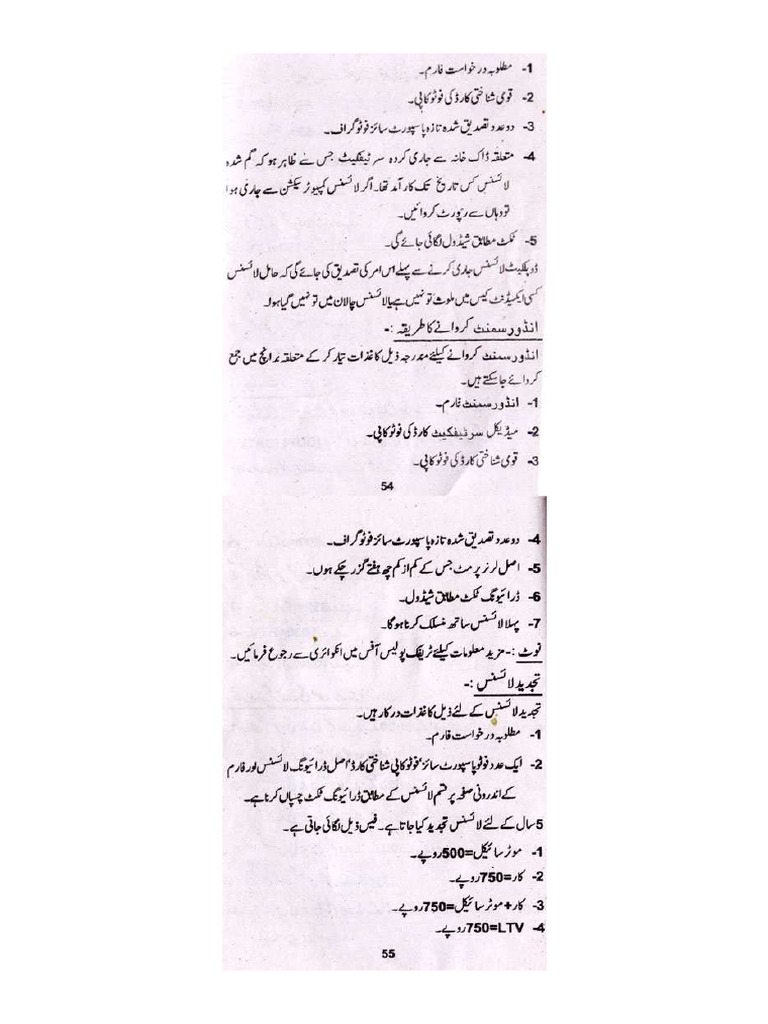 1- مطلوبہ درخواست فارم۔
2- قومی شناختی کارڈ کی فوٹو کاپی۔
3- دو عدد تصدیق شدہ تازہ پاسپورٹ سائز فوٹو گراف۔
4- متعلقہ ڈاک خانہ سے جاری کردہ سرٹیفکیٹ جس سے ظاہر ہو کہ گم شدہ
لائسنس کس تاریخ تک کار آمد تھا۔ اگر لائسنس کمپیوٹر سیکشن سے جاری ہوا
تو وہاں سے رپورٹ کروائیں۔
5- ٹکٹ مطابق شیڈول لگائی جائے گی۔
ڈوپلیکیٹ لائسنس جاری کرنے سے پہلے اس امر کی تصدیق کی جائے گی کہ حامل لائسنس
کسی ایکسیڈنٹ کیس میں ملوث تو نہیں ہے یا لائسنس چالان میں تو نہیں گیا ہوا۔
انڈورسمنٹ کروانے کا طریقہ :-
انڈورسمنٹ کروانے کیلئے مندرجہ ذیل کاغذات تیار کر کے متعلقہ برانچ میں جمع
کروائے جا سکتے ہیں۔
1- انڈورسمنٹ فارم۔
2- میڈیکل سرٹیفکیٹ کارڈ کی فوٹو کاپی۔
3- قومی شناختی کارڈ کی فوٹو کاپی۔
54
4- دو عدد تصدیق شدہ تازہ پاسپورٹ سائز فوٹو گراف۔
5- اصل لرنر پرمٹ جس کے کم از کم چھ ہفتے گزر چکے ہوں۔
6- ڈرائیونگ ٹکٹ مطابق شیڈول۔
7- پہلا لائسنس ساتھ منسلک کرنا ہوگا۔
نوٹ :- مزید معلومات کیلئے ٹریفک پولیس آفس میں انکوائری سے رجوع فرمائیں۔
تجدید لائسنس :-
تجدید لائسنس کے لئے ذیل کاغذات درکار ہیں۔
1- مطلوبہ درخواست فارم۔
2- ایک عدد فوٹو پاسپورٹ سائز' فوٹو کاپی شناختی کارڈ' اصل ڈرائیونگ لائسنس اور فارم
کے اندرونی صفحہ پر قسم لائسنس کے مطابق ڈرائیونگ ٹکٹ چسپاں کرنا ہے۔
5 سال کے لئے لائسنس تجدید کیا جاتا ہے۔ فیس ذیل لگائی جاتی ہے۔
1- موٹر سائیکل=500 روپے۔
2- کار=750 روپے۔
3- کار+موٹر سائیکل=750 روپے۔
4- LTV=750 روپے۔
55